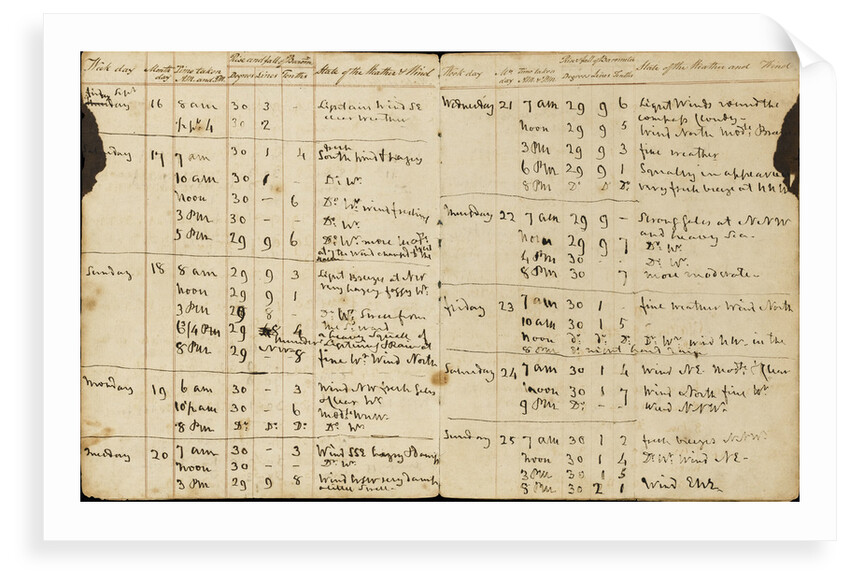 Rise and fall of Barom
Week day Month day Time taken AM. and PM. Degrees Lines Tenths State of the Weather & Wind
Friday 16 8 am 30 3 - Wind SE
4 30 2 weather
fresh
17 7 am 30 1 4 South Wind & hazey
10 am 30 1 - Do. Wr.
Noon 30 - 6 Do. Wr. wind freshing
3 PM 30 - - Do. Wr.
5 PM 29 9 6 Do. Wr. more
at 7 the wind changed to the
Sunday 18 8 am 29 9 3 Light Breeze at NW
Noon 29 9 1 very hazey foggy Wr.
3 PM 29 8 - Do. Wr. Swell from
the
6 3/4 PM 29 8 4 a heavy Squall of
thunder Lightning & Rain at
8 PM 29 NW 8 fine Wr. Wind North
Monday 19 6 am 30 - 3 Wind NW fresh Gales
& clear Wr.
10 am 30 - 6 Modt. WNW
8 PM Do. Do. Do. Do. Wr.
Tuesday 20 7 am 30 - 3 Wind SSE hazey & damp
Noon 30 - - Do. Wr.
3 PM 29 9 8 Wind WSW very damp
a little Swell
Rise & fall of Barometer
Week day Mth. day Time taken AM & PM Degrees Lines Tenths State of the Weather and Wind
Wednesday 21 7 am 29 9 6 Light Winds round the
compass Cloudy
Noon 29 9 5 Wind North Modt. Breeze
3 PM 29 9 3 fine weather
6 PM 29 9 1 Squally in appearance
8 PM Do. Do. Do. very fresh breeze at NNW
Thursday 22 7 am 29 9 - Strong Gales at NNW
and heavy Sea
Noon 29 9 7 Do. Wr.
4 PM 30 - - Do. Wr.
8 PM 30 7 more moderate
Friday 23 7 am 30 1 - fine weather Wind North
10 am 30 1 5 -
Noon Do. Do. Do. Do. Wr. wind NW. in the
8 PM 30 night hard rain
Saturday 24 7 am 30 1 4 Wind NE. Modt. & Clear
Noon 30 1 7 Wind North fine Wr.
9 PM Do. - - Wind NNW.
Sunday 25 7 am 30 1 2 fresh breezes NNW
Noon 30 1 4 Do. Wr. Wind NE
3 PM 30 1 5
8 PM 30 2 1 Wind